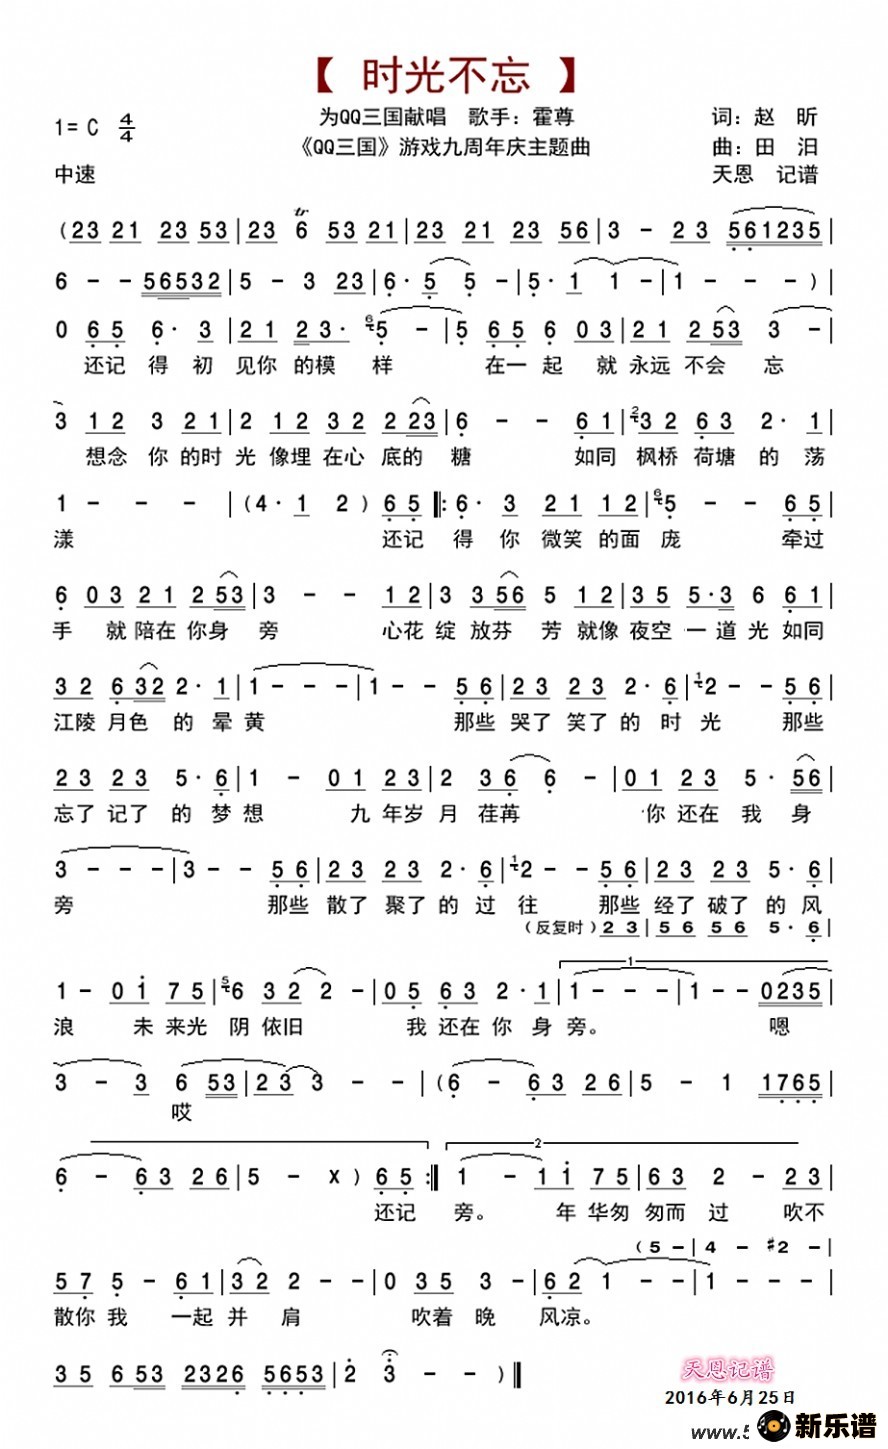 【 时光不忘 】
1= C 4/4 为QQ三国献唱 歌手：霍尊 词：赵 昕
《QQ三国》游戏九周年庆主题曲 曲：田 汨
中速 天恩 记谱
( 23 21 23 53 | 23 tr 6 53 21 | 23 21 23 56 | 3 - 23 561235 |
6 - - 56532 | 5 - 3 23 | 6· 5 5 - | 5· 1 1 - | 1 - - - )
0 65 6· 3 | 21 23· 6 5 - | 5 65 6 03 | 21 2 53 3 - |
还记 得 初 见你 的模 样 在一 起 就 永远 不会 忘
3 12 3 21 | 2 12 32 2 23 | 6 - - 61 | 2 32 63 2· 1 |
想念 你 的时 光 像埋 在心 底的 糖 如同 枫桥 荷塘 的 荡
1 - - - | (4· 1 2 ) 65 |: 6· 3 21 12 | 6 5 - - 65 |
漾 还记 得 你 微笑 的面 庞 牵过
6 03 21 2 53 | 3 - - 12 | 3 3 56 5 12 | 35 5·3 6 61 |
手 就 陪在 你身 旁 心花 绽 放芬 芳 就像 夜空 一 道 光 如同
32 6 32 2· 1 | 1 - - - | 1 - - 56 | 23 23 2· 6 | 1 2 - - 56 |
江陵 月色 的 晕 黄 那些 哭了 笑了 的 时 光 那些
23 23 5· 6 | 1 - 01 23 | 2 36 6 - | 01 23 5· 56 |
忘了 记了 的 梦 想 九 年岁 月 荏苒 你 还在 我 身
3 - - - | 3 - - 56 | 23 23 2· 6 | 1 2 - - 56 | 23 23 5· 6 |
旁 那些 散了 聚了 的 过 往 那些 经了 破了 的 风
(反复时) 23 | 56 56 5· 6 |
1 - 01 75 | 5 6 32 2 - | 05 63 2· 1 | 1 1 - - - | 1 - - 0235 |
浪 未 来光 阴 依旧 我 还在 你 身 旁。 嗯
3 - 3 6 53 | 23 3 - - | (6 - 63 26 | 5 - 1 1765 |
哎
6 - 63 26 | 5 - X ) 65 :| 2 1 - 11 75 | 63 2 - 23 |
还记 旁。 年 华匆 匆而 过 吹不
(5 - | 4 - #2 - |
57 5 - 61 | 32 2 - - | 0 35 3 - | 62 1 - - | 1 - - - |
散你 我 一起 并 肩 吹着 晚 风凉。
35 6 53 2326 5653 | 2 3 - - ‖
天恩记谱
2016年6月25日
www.5
新乐谱